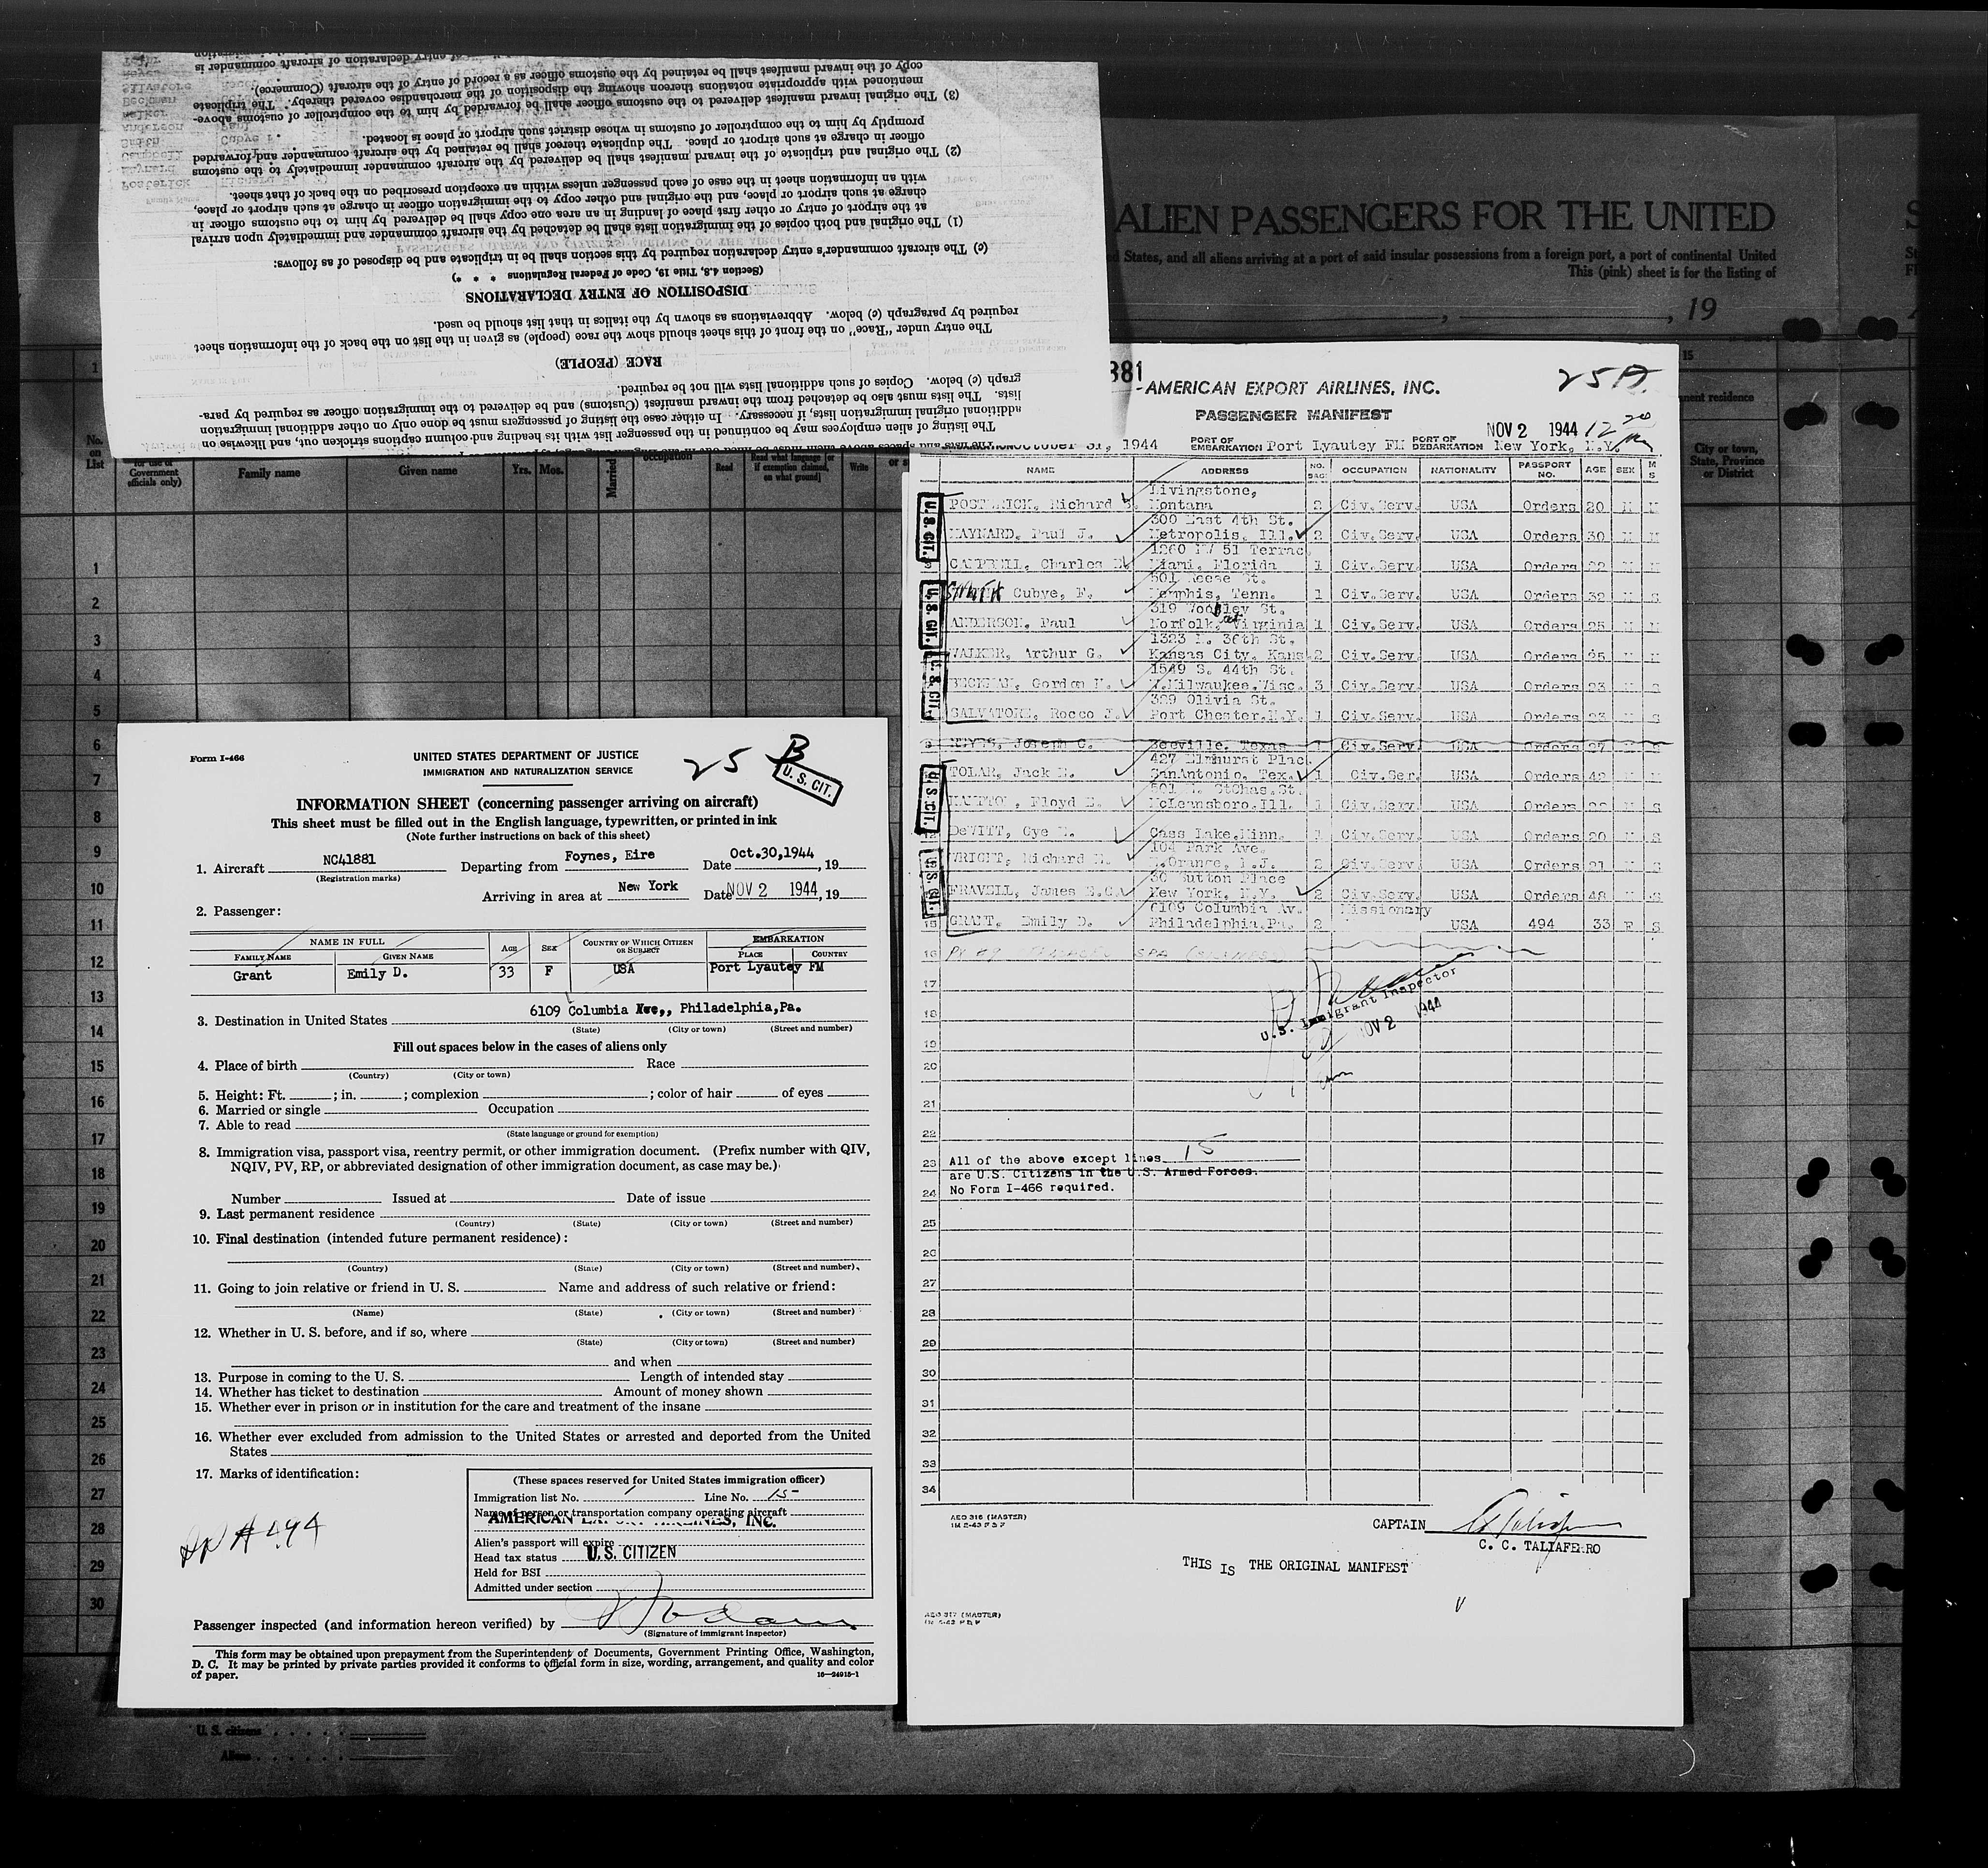 The listing of alien employees may be continued in the passenger list with its heading and column captions stricken out, and likewise on
additional original immigration lists, if necessary. In either case the listing of passengers must be done only on other additional immigration
lists. The lists must also be detached from the inward manifest (Customs) and be delivered to the immigration officer as required by para-
graph (c) below. Copies of such additional lists will not be required.
RACE (PEOPLE)
The entry under "Race" on the front of this sheet should show the race (people) as given in the list on the back of the information sheet
required by paragraph (c) below. Abbreviations as shown by the italics in that list should be used.
DISPOSITION OF ENTRY DECLARATIONS
(Section 4.8, Title 19, Code of Federal Regulations * * *)
(c) The aircraft commander's entry declaration required by this section shall be in triplicate and be disposed of as follows:
(1) The original and both copies of the immigration lists shall be detached by the aircraft commander and immediately upon arrival
at the airport of entry or other first place of landing in an area one copy shall be delivered by him to the customs officer in
charge at such airport or place, and the original and other copy to the immigration officer in charge at such airport or place,
with an information sheet in the case of each passenger unless within an exception prescribed on the back of that sheet.
(2) The original and triplicate of the inward manifest shall be delivered by the aircraft commander immediately to the customs
officer in charge at such airport or place. The duplicate thereof shall be retained by the aircraft commander and forwarded
promptly by him to the comptroller of customs in whose district such airport or place is located.
(3) The original inward manifest delivered to the customs officer shall be forwarded by him to the comptroller of customs above-
mentioned with appropriate notations thereon showing the disposition of the merchandise covered thereby. The triplicate
copy of the inward manifest shall be retained by the customs officer as a record of entry of the aircraft (Commerce).
ALIEN PASSENGERS FOR THE UNITED
States, and all aliens arriving at a port of said insular possessions from a foreign port, a port of continental United
This (pink) sheet is for the listing of
19
No. on List
Government officials only)
Family name
Given name
Yrs.
Mos.
Married
occupation
Read
Read what language [or if exemption claimed, on what ground]
Write
15
City or town, State, Province or District
1
2
3
4
5
6
7
8
9
10
11
12
13
14
15
16
17
18
19
20
21
22
23
24
25
26
27
28
29
30
U. S. citizens
Aliens
Form I-466
UNITED STATES DEPARTMENT OF JUSTICE
IMMIGRATION AND NATURALIZATION SERVICE
25 B
U. S. CIT.
INFORMATION SHEET (concerning passenger arriving on aircraft)
This sheet must be filled out in the English language, typewritten, or printed in ink
(Note further instructions on back of this sheet)
1. Aircraft NC41881 Departing from Foynes, Eire Date Oct.30,1944, 19
(Registration marks)
Arriving in area at New York Date NOV 2 1944, 19
2. Passenger:
NAME IN FULL AGE SEX COUNTRY OF WHICH CITIZEN OR SUBJECT EMBARKATION
FAMILY NAME GIVEN NAME PLACE COUNTRY
Grant Emily D. 33 F USA Port Lyautey FM
3. Destination in United States 6109 Columbia Ave,, Philadelphia,Pa.
(State) (City or town) (Street and number)
Fill out spaces below in the cases of aliens only
4. Place of birth Race
(Country) (City or town)
5. Height: Ft. ; in. ; complexion ; color of hair of eyes
6. Married or single Occupation
7. Able to read
(State language or ground for exemption)
8. Immigration visa, passport visa, reentry permit, or other immigration document. (Prefix number with QIV,
NQIV, PV, RP, or abbreviated designation of other immigration document, as case may be.)
Number Issued at Date of issue
9. Last permanent residence
(Country) (State) (City or town) (Street and number)
10. Final destination (intended future permanent residence):
(Country) (State) (City or town) (Street and number)
11. Going to join relative or friend in U. S. Name and address of such relative or friend:
(Name) (State) (City or town) (Street and number)
12. Whether in U. S. before, and if so, where
(State) (City or town) (Street and number)
and when
13. Purpose in coming to the U. S. Length of intended stay
14. Whether has ticket to destination Amount of money shown
15. Whether ever in prison or in institution for the care and treatment of the insane
16. Whether ever excluded from admission to the United States or arrested and deported from the United
States
17. Marks of identification:
(These spaces reserved for United States immigration officer)
Immigration list No. 1 Line No. 15
Name of person or transportation company operating aircraft
AMERICAN EXPORT AIRLINES, INC.
Alien's passport will expire
Head tax status U.S. CITIZEN
Held for BSI
Admitted under section
# 494
Passenger inspected (and information hereon verified) by
(Signature of immigrant inspector)
This form may be obtained upon prepayment from the Superintendent of Documents, Government Printing Office, Washington,
D. C. It may be printed by private parties provided it conforms to official form in size, wording, arrangement, and quality and color
of paper.
16—24915-1
881
AMERICAN EXPORT AIRLINES, INC.
25 A
PASSENGER MANIFEST
NOV 2 1944 12
October 31, 1944 PORT OF EMBARKATION Port Lyautey FM PORT OF DEBARKATION New York, N.Y.
NAME ADDRESS NO. BAG. OCCUPATION NATIONALITY PASSPORT NO. AGE SEX M S
Livingstone,
POSTERICK, Richard Montana 2 Civ.Serv. USA Orders 20 M M
300 East 4th St.
MAYNARD, Paul J. Metropolis, Ill. 2 Civ.Serv. USA Orders 30 M M
1260 NW 51 Terrac
CAMPBELL, Charles Miami, Florida 1 Civ.Serv. USA Orders 22 M M
501 Reese St.
SMITH Cubye, F. Memphis, Tenn. 1 Civ.Serv. USA Orders 32 M S
319 Woodley St.
ANDERSON, Paul Norfolk, Virginia 1 Civ.Serv. USA Orders 25 M M
1323 N. 36th St.
WALKER, Arthur G. Kansas City, Kans 2 Civ.Serv. USA Orders 25 M M
1549 S. 44th St.
BECKMAN, Gordon H. W.Milwaukee,Wisc. 3 Civ.Serv. USA Orders 23 M S
329 Olivia St.
SALVATORE, Rocco J. Port Chester,N.Y. 1 Civ.Serv. USA Orders 23 M S
9 Joseph C. Beeville, Texas 1 Civ.Serv. USA Orders 27 M S
427 Elmhurst Plac
TOLAR, Jack SanAntonio, Tex. 1 Civ.Ser. USA Orders 42 M M
StChas.St.
Floyd E. McLeansboro,Ill. 1 Civ.Serv. USA Orders M S
12 DeWITT, Gye Cass Lake,Minn. 1 Civ.Serv. USA Orders 20 M S
104 Park Ave.
WRIGHT, Richard Orange, N.J. 2 Civ.Serv. USA Orders 21 M S
30 Sutton Place
FRAVELL, James New York, N.Y. 2 Civ.Serv. USA Orders 48 M S
6109 Columbia Av. Missionary
15 GRANT, Emily D. Philadelphia,Pa. 2 USA 494 33 F S
U.S. CIT.
U.S. CIT.
U.S. CIT.
U.S. CIT.
U.S. CIT.
16
17
18
19
20
21
22
U.S. Immigrant Inspector
NOV 2 1944
23 All of the above except lines 15
are U.S. Citizens in the U.S. Armed Forces.
24 No Form I-466 required.
25
26
27
28
29
30
31
32
33
34
AEO 316 (MASTER)
CAPTAIN
C. C. TALIAFERRO
THIS IS THE ORIGINAL MANIFEST
AEO 317 (MASTER)